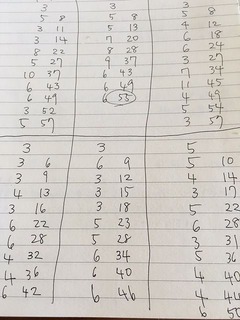 3
5 8
3 11
3 14
8 22
5 27
10 37
6 43
6 49
3 52
5 57
3
5 8
5 13
7 20
8 28
9 37
6 43
6 49
6 55
3
5 8
4 12
6 18
6 24
3 27
7 34
11 45
4 49
5 54
3 57
3
3 6
3 9
4 13
3 16
6 22
6 28
4 32
4 36
6 42
3
6 9
3 12
3 15
3 18
5 23
5 28
6 34
6 40
6 46
5
5 10
4 14
3 17
5 22
6 28
3 31
5 36
4 40
4 44
6